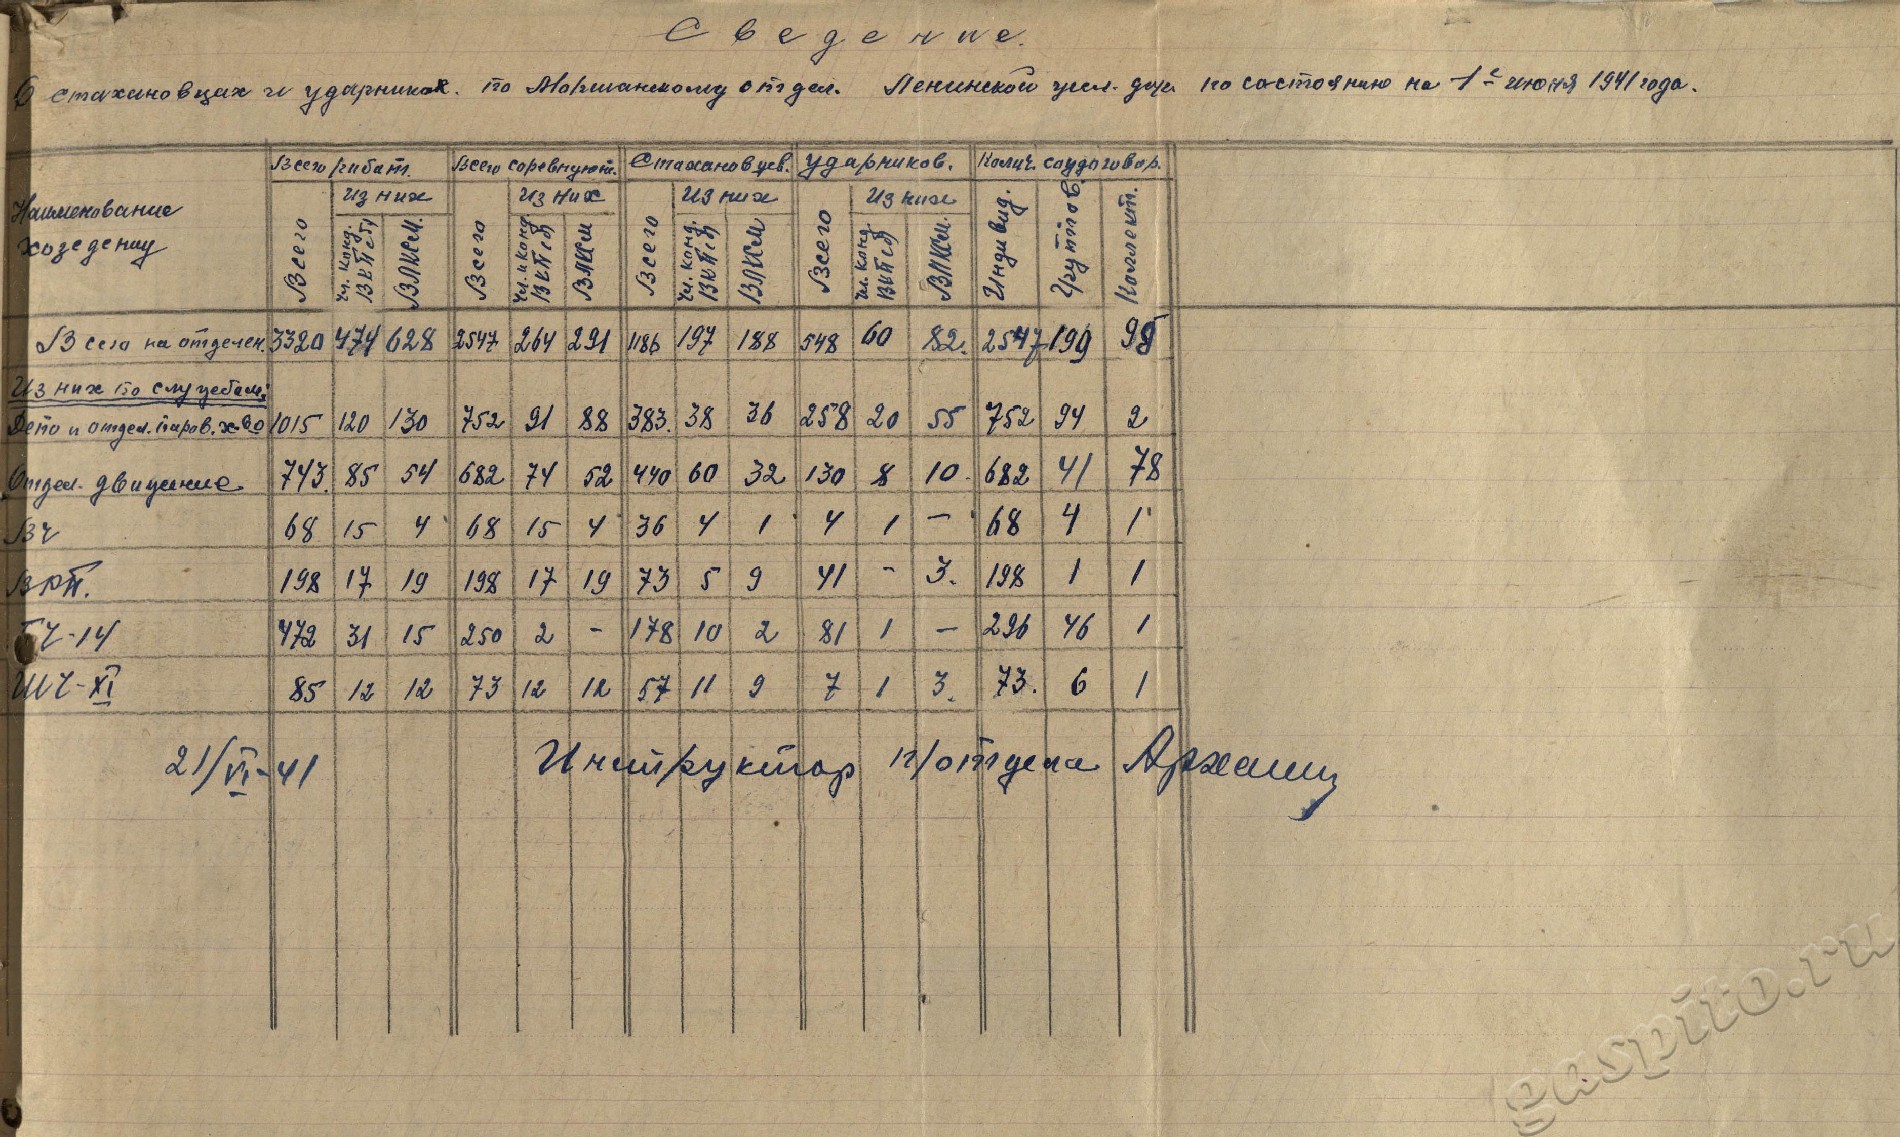 Сведение.
О стахановцах и ударниках. по Моршанскому отдел. Ленинской жел. дор. по состоянию на 1е июня 1941 года.
Всего работ. Всего соревнуют. Стахановцев. Ударников. Колич. соцдоговор.
Наименование Из них Из них Из них Из них
Всего Чл. Канд. ВКП(б) ВЛКСМ. Всего Чл. и Канд. ВКП(б) ВЛКСМ Всего Чл. Канд. ВКП(б) ВЛКСМ Всего Чл. Канд. ВКП(б) ВЛКСМ. Индивид. Группов. Коллект.
Всего на отделен. 3320 474 628 2547 264 291 1186 197 188 548 60 82. 2547 199 98
Из них по службам:
Депо и отдел. паров. х-во 1015 120 130 752 91 88 383. 38 36 258 20 55 752 94 2
Отдел. движение 743. 85 54 682 74 52 440 60 32 130 8 10. 682 41 78
ВЧ 68 15 4 68 15 4 36 4 1 4 1 — 68 4 1
ВРП. 198 17 19 198 17 19 73 5 9 41 - 3. 198 1 1
ПЧ-14 472 31 15 250 2 - 178 10 2 81 1 — 296 46 1
ШЧ-XI 85 12 12 73 12 12 57 11 9 7 1 3. 73. 6 1
21/VI-41 Инструктор п/отдела
gaspito.ru